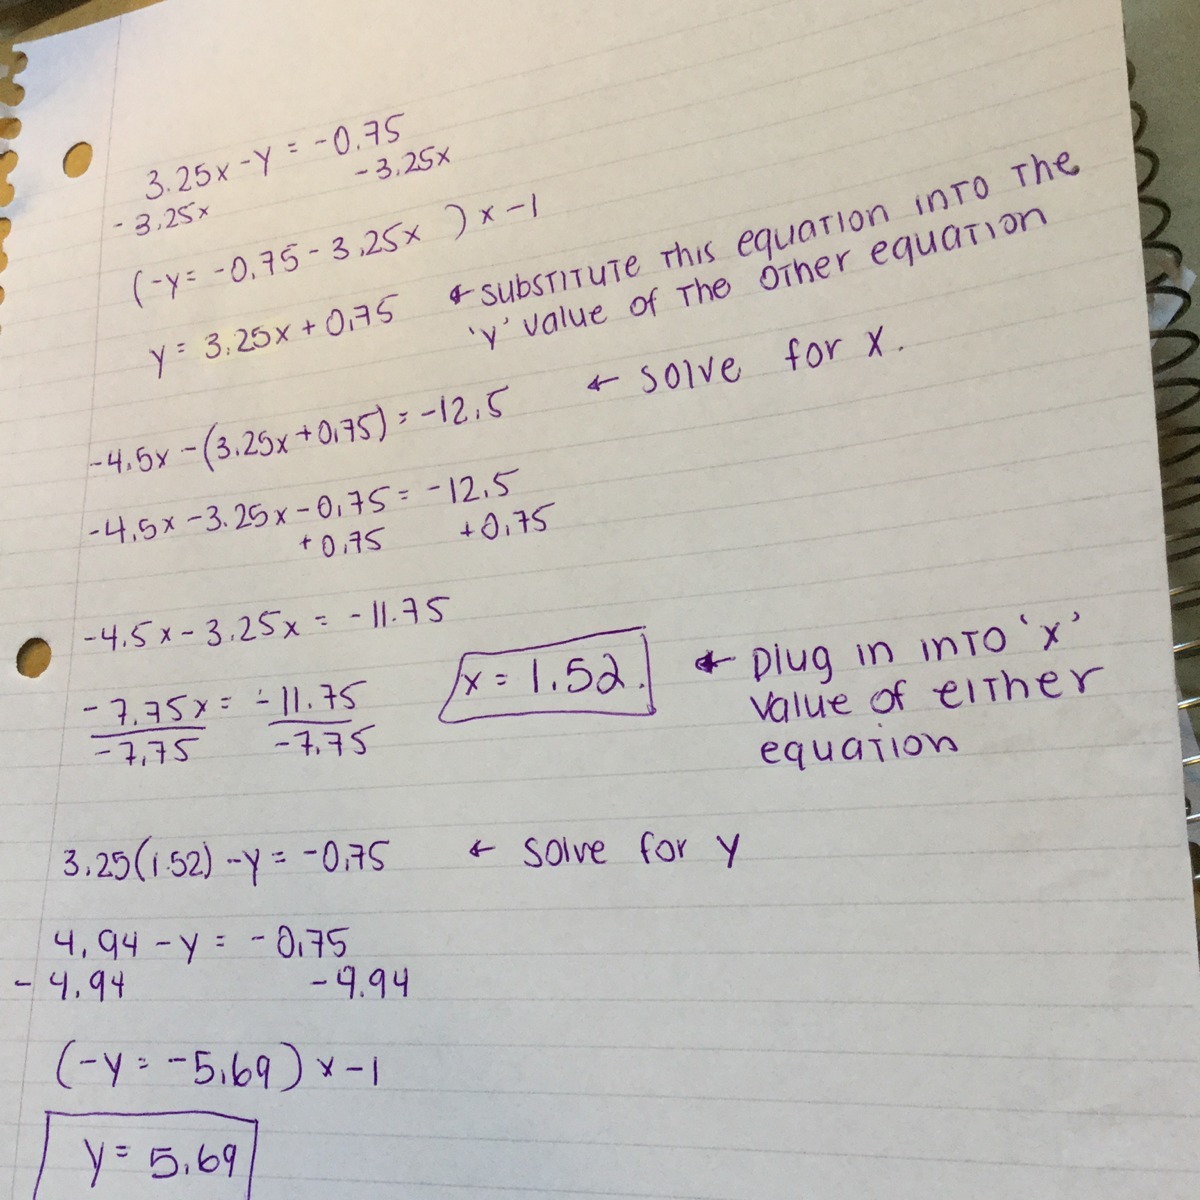 3.25x - y = -0.75
- 3.25x - 3.25x
(-y = -0.75 - 3.25x ) x -1
y = 3.25x + 0.75 ← substitute this equation into the
'y' value of the other equation
-4.5x - (3.25x + 0.75) = -12.5 ← solve for x.
-4.5x - 3.25x - 0.75 = -12.5
+ 0.75 + 0.75
-4.5x - 3.25x = -11.75
-7.75x = -11.75
-7.75 -7.75
x = 1.52. ← plug in into 'x'
value of either
equation
3.25(1.52) - y = -0.75 ← solve for y
4.94 - y = -0.75
- 4.94 - 4.94
(-y = -5.69) x -1
y = 5.69